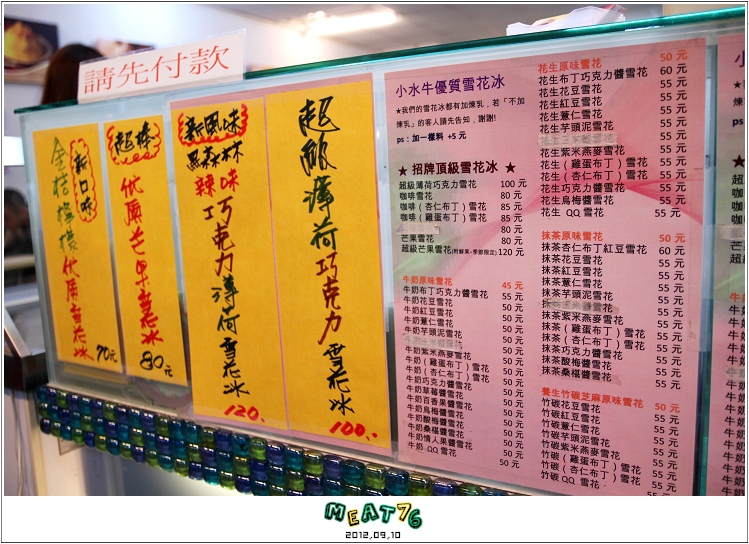 請先付款
新口味
金桔檸檬優質雪花冰
70元
超棒
優質芒果雪花冰
80元
新風味
黑森林
辣味
巧克力薄荷雪花冰
120.
超級薄荷巧克力雪花冰
100.
小水牛優質雪花冰
★我們的雪花冰都有加煉乳，若「不加
煉乳」的客人請先告知，謝謝!
ps：加一樣料 +5元
★ 招牌頂級雪花冰 ★
超級薄荷巧克力雪花 100 元
咖啡雪花 80 元
咖啡（杏仁布丁）雪花 85 元
咖啡（雞蛋布丁）雪花 85 元
雪花 80 元
芒果雪花 80 元
超級芒果雪花(附鮮果-季節限定) 120 元
牛奶原味雪花 45 元
牛奶布丁巧克力醬雪花 55 元
牛奶花豆雪花 50 元
牛奶紅豆雪花 50 元
牛奶薏仁雪花 50 元
牛奶芋頭泥雪花 55 元
牛奶紫米燕麥雪花 50 元
牛奶（雞蛋布丁）雪花 50 元
牛奶（杏仁布丁）雪花 50 元
牛奶巧克力醬雪花 50 元
牛奶草莓醬雪花 50 元
牛奶百香果醬雪花 50 元
牛奶烏梅醬雪花 50 元
牛奶酸梅醬雪花 50 元
牛奶桑椹醬雪花 50 元
牛奶情人果醬雪花 50 元
牛奶 QQ 雪花 50 元
花生原味雪花 50 元
花生布丁巧克力醬雪花 60 元
花生花豆雪花 55 元
花生紅豆雪花 55 元
花生薏仁雪花 55 元
花生芋頭泥雪花 55 元
花生紫米燕麥雪花 55 元
花生（雞蛋布丁）雪花 55 元
花生（杏仁布丁）雪花 55 元
花生巧克力醬雪花 55 元
花生烏梅醬雪花 55 元
花生 QQ 雪花 55 元
抹茶原味雪花 50 元
抹茶杏仁布丁紅豆雪花 60 元
抹茶花豆雪花 55 元
抹茶紅豆雪花 55 元
抹茶薏仁雪花 55 元
抹茶芋頭泥雪花 55 元
抹茶紫米燕麥雪花 55 元
抹茶（雞蛋布丁）雪花 55 元
抹茶（杏仁布丁）雪花 55 元
抹茶巧克力醬雪花 55 元
抹茶酸梅醬雪花 55 元
抹茶桑椹醬雪花 55 元
養生竹碳芝麻原味雪花 50 元
竹碳花豆雪花 55 元
竹碳紅豆雪花 55 元
竹碳薏仁雪花 55 元
竹碳芋頭泥雪花 55 元
竹碳紫米燕麥雪花 55 元
竹碳（雞蛋布丁）雪花 55 元
竹碳（杏仁布丁）雪花 55 元
竹碳 QQ 雪花 55 元
小水
MEAT76
2012,09,10